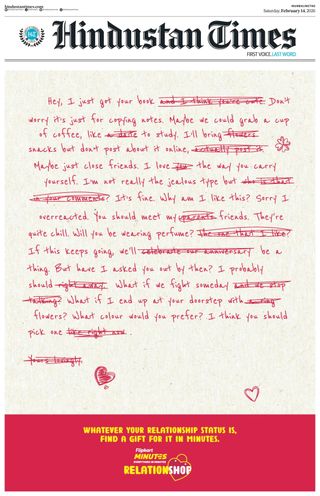 hindustantimes.com
Saturday, February 14, 2026
Hindustan Times
FIRST VOICE. LAST WORD.
Hey, I just got your book and I think you're cute. Don't
worry it's just for copying notes. Maybe we could grab a cup
of coffee, like a date to study. I'll bring flowers
snacks but don't post about it online, actually post it.
Maybe just close friends. I love you the way you carry
yourself. I'm not really the jealous type but who is that
in your comments? It's fine. Why am I like this? Sorry I
overreacted. You should meet my parents friends. They're
quite chill. Will you be wearing perfume? The one that I like?
If this keeps going, we'll celebrate our anniversary be a
thing. But have I asked you out by then? I probably
should right away. What if we fight someday and we stop
talking? What if I end up at your doorstep with a ring
flowers? What colour would you prefer? I think you should
pick one like right now.
Yours lovingly,
WHATEVER YOUR RELATIONSHIP STATUS IS,
FIND A GIFT FOR IT IN MINUTES.
Flipkart
MINUTES
RELATIONSHOP